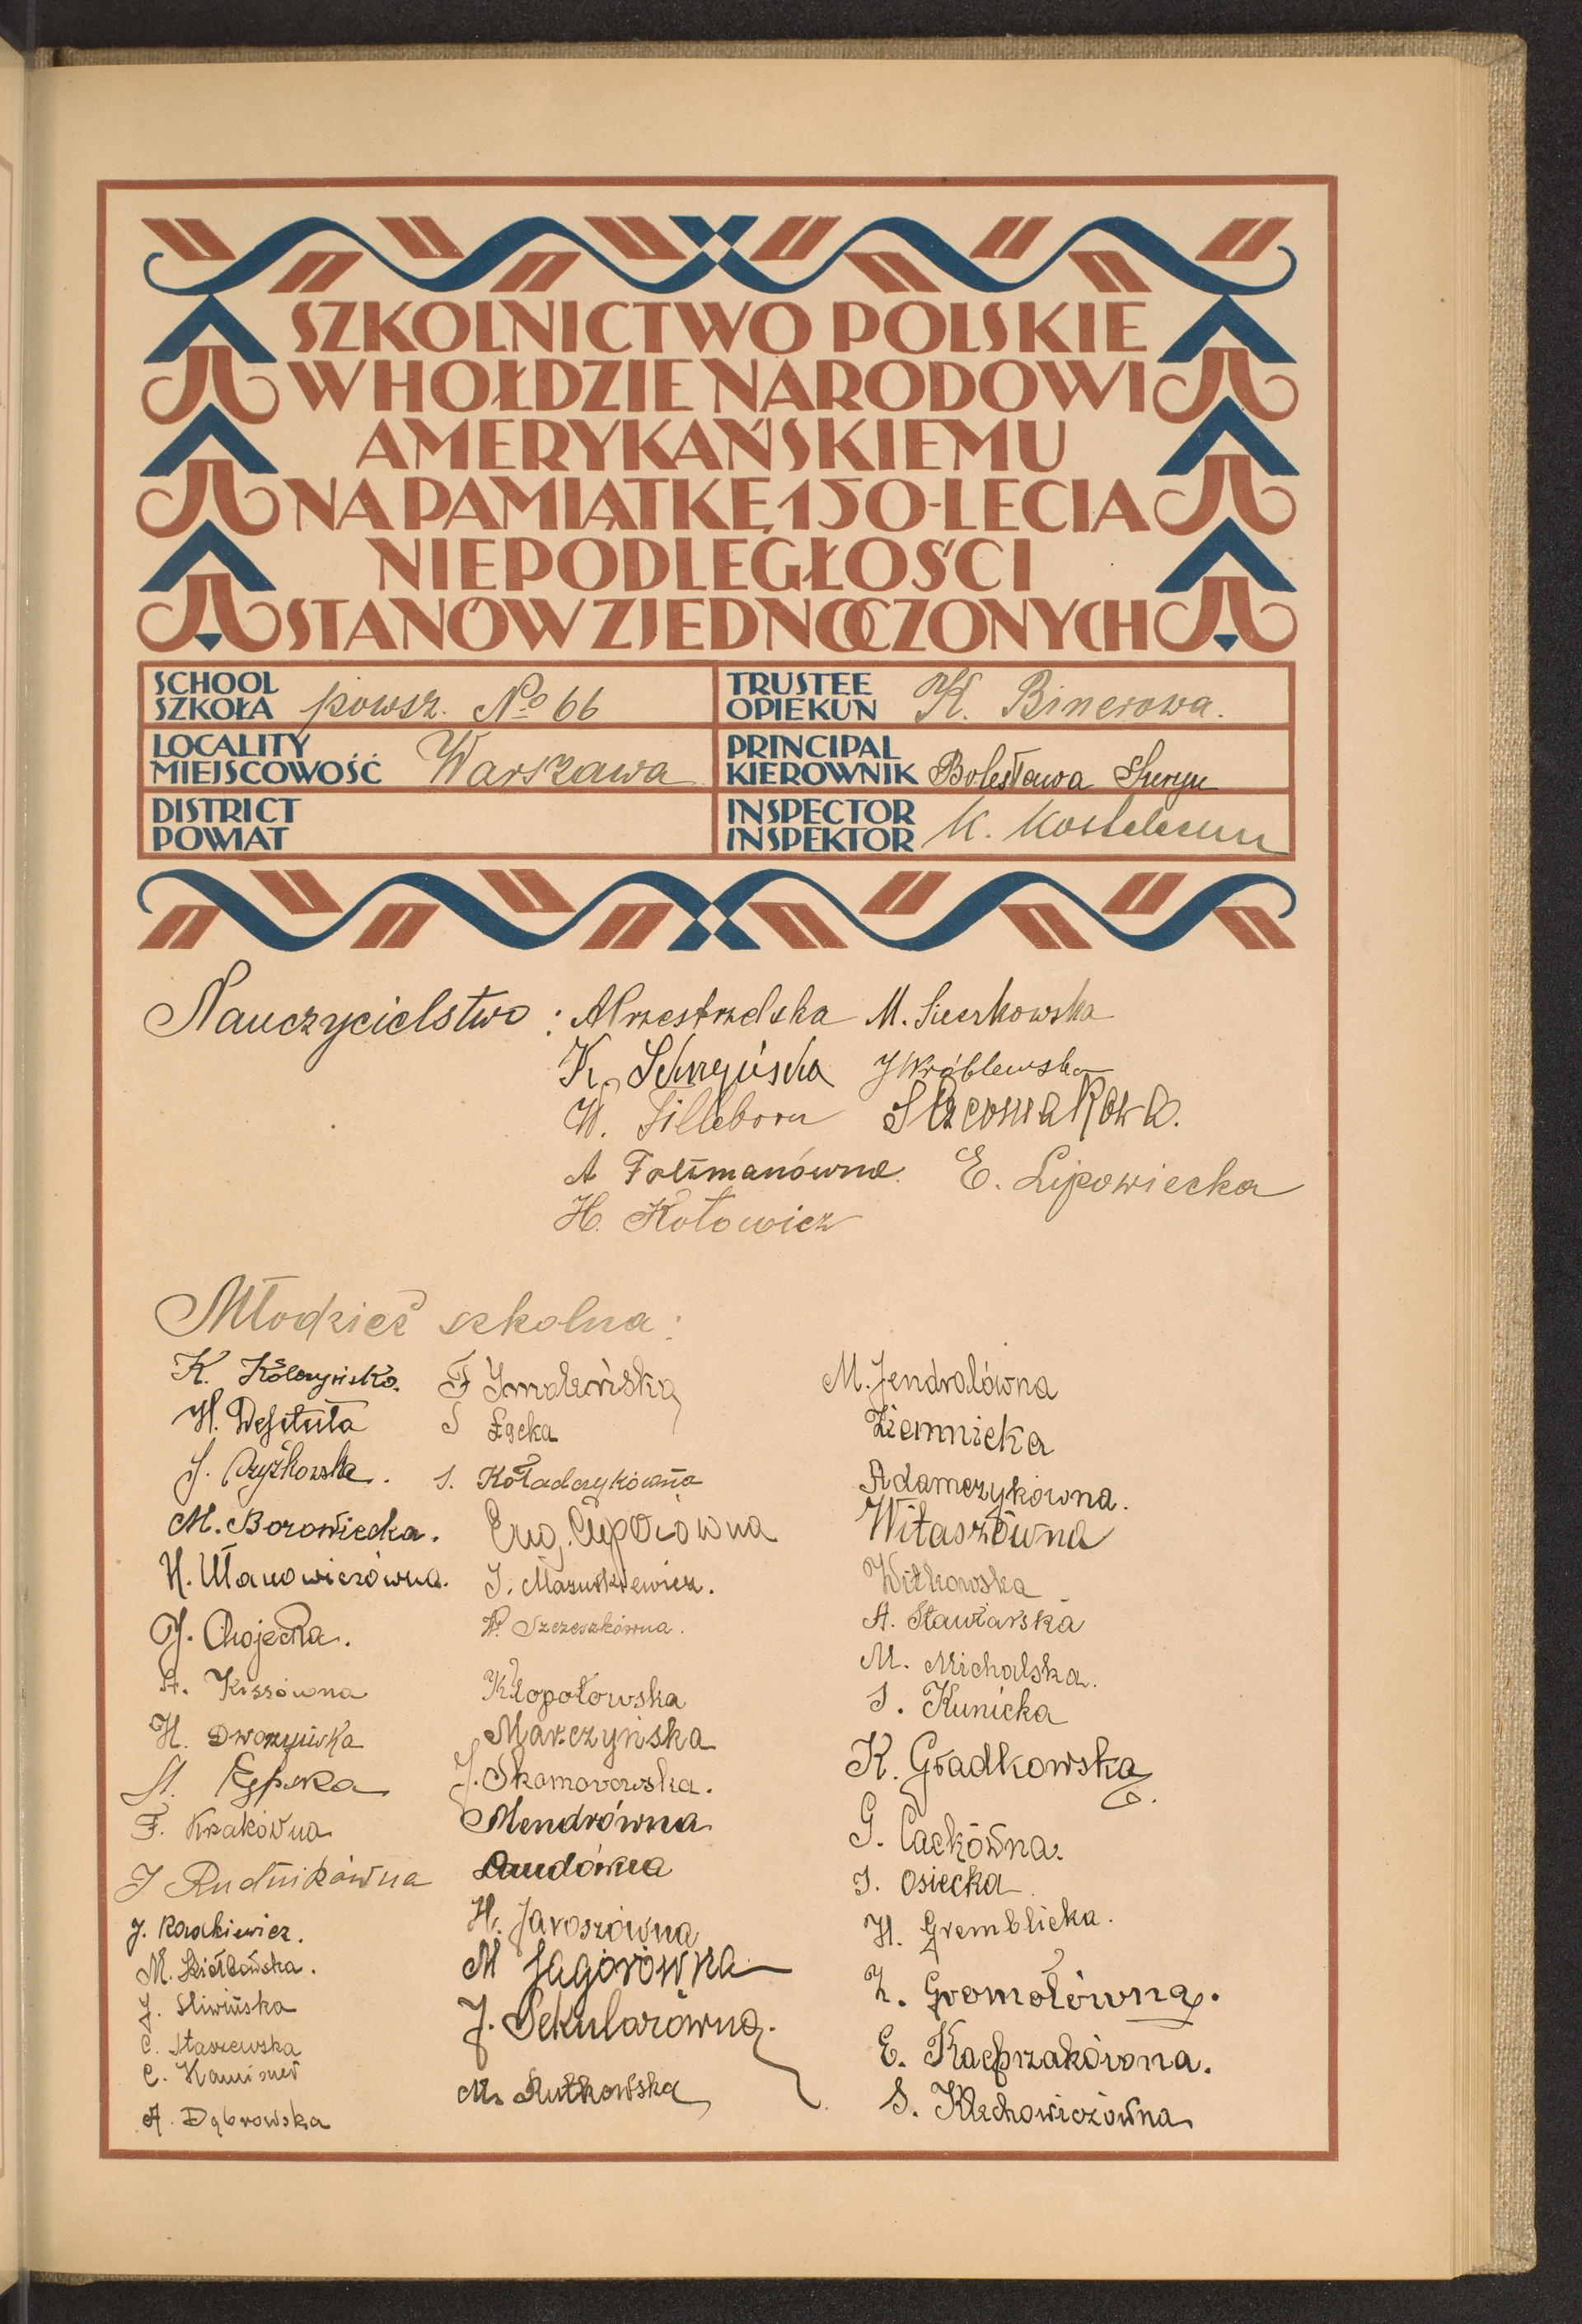 SZKOLNICTWO POLSKIE
W HOŁDZIE NARODOWI
AMERYKAŃSKIEMU
NA PAMIĄTKĘ 150-LECIA
NIEPODLEGŁOŚCI
STANÓW ZJEDNOCZONYCH
SCHOOL
SZKOŁA powsz. No 66
TRUSTEE
OPIEKUN K. Binerowa.
LOCALITY
MIEJSCOWOŚĆ Warszawa
PRINCIPAL
KIEROWNIK Bolesława
DISTRICT
POWIAT
INSPECTOR
INSPEKTOR K.
Nauczycielstwo: A Przestrzelska M. Sierkowska
K. J Wróblewska
W. Filleborn
A Foltmanówna. E. Lipowiecka
H. Kotowicz
Młodzież szkolna:
K. Kólczyńska.
H. Destuła
J. Pyżkowska.
M. Borowiecka.
H. Ułanowiczówna.
J. Chojecka.
A. Kissówna
H. Dworzyńska
St. Kępska
F. Krakówna
J Rudnikówna
J. Raczkiewicz.
M. Kiełbasińska.
J. Sliwińska
C. Staszewska
C. Kaminer
A. Dąbrowska
F Smoleńska
S Łącka
S. Kołaczykówna
Eug. Cieplówna
J. Mazurkiewicz.
W. Szczeszkówna.
Kłopotowska
Marczyńska
J. Skomorowska.
Mendrówna
Dudówna
H. Jaroszówna
M Jagorówna
J. Sekularówna.
M. Rutkowska
M. Jendralówna
Ziemnicka
Adamczykówna.
Witaszówna
Witkowska
A. Stawiarska
M. Michalska.
S. Kunicka
K. Gradkowska
G. Cackówna.
J. Osiecka
H. Gremblicka.
Z. Gromołówna.
E. Kacprzakówna.
S. Klechowiczówna